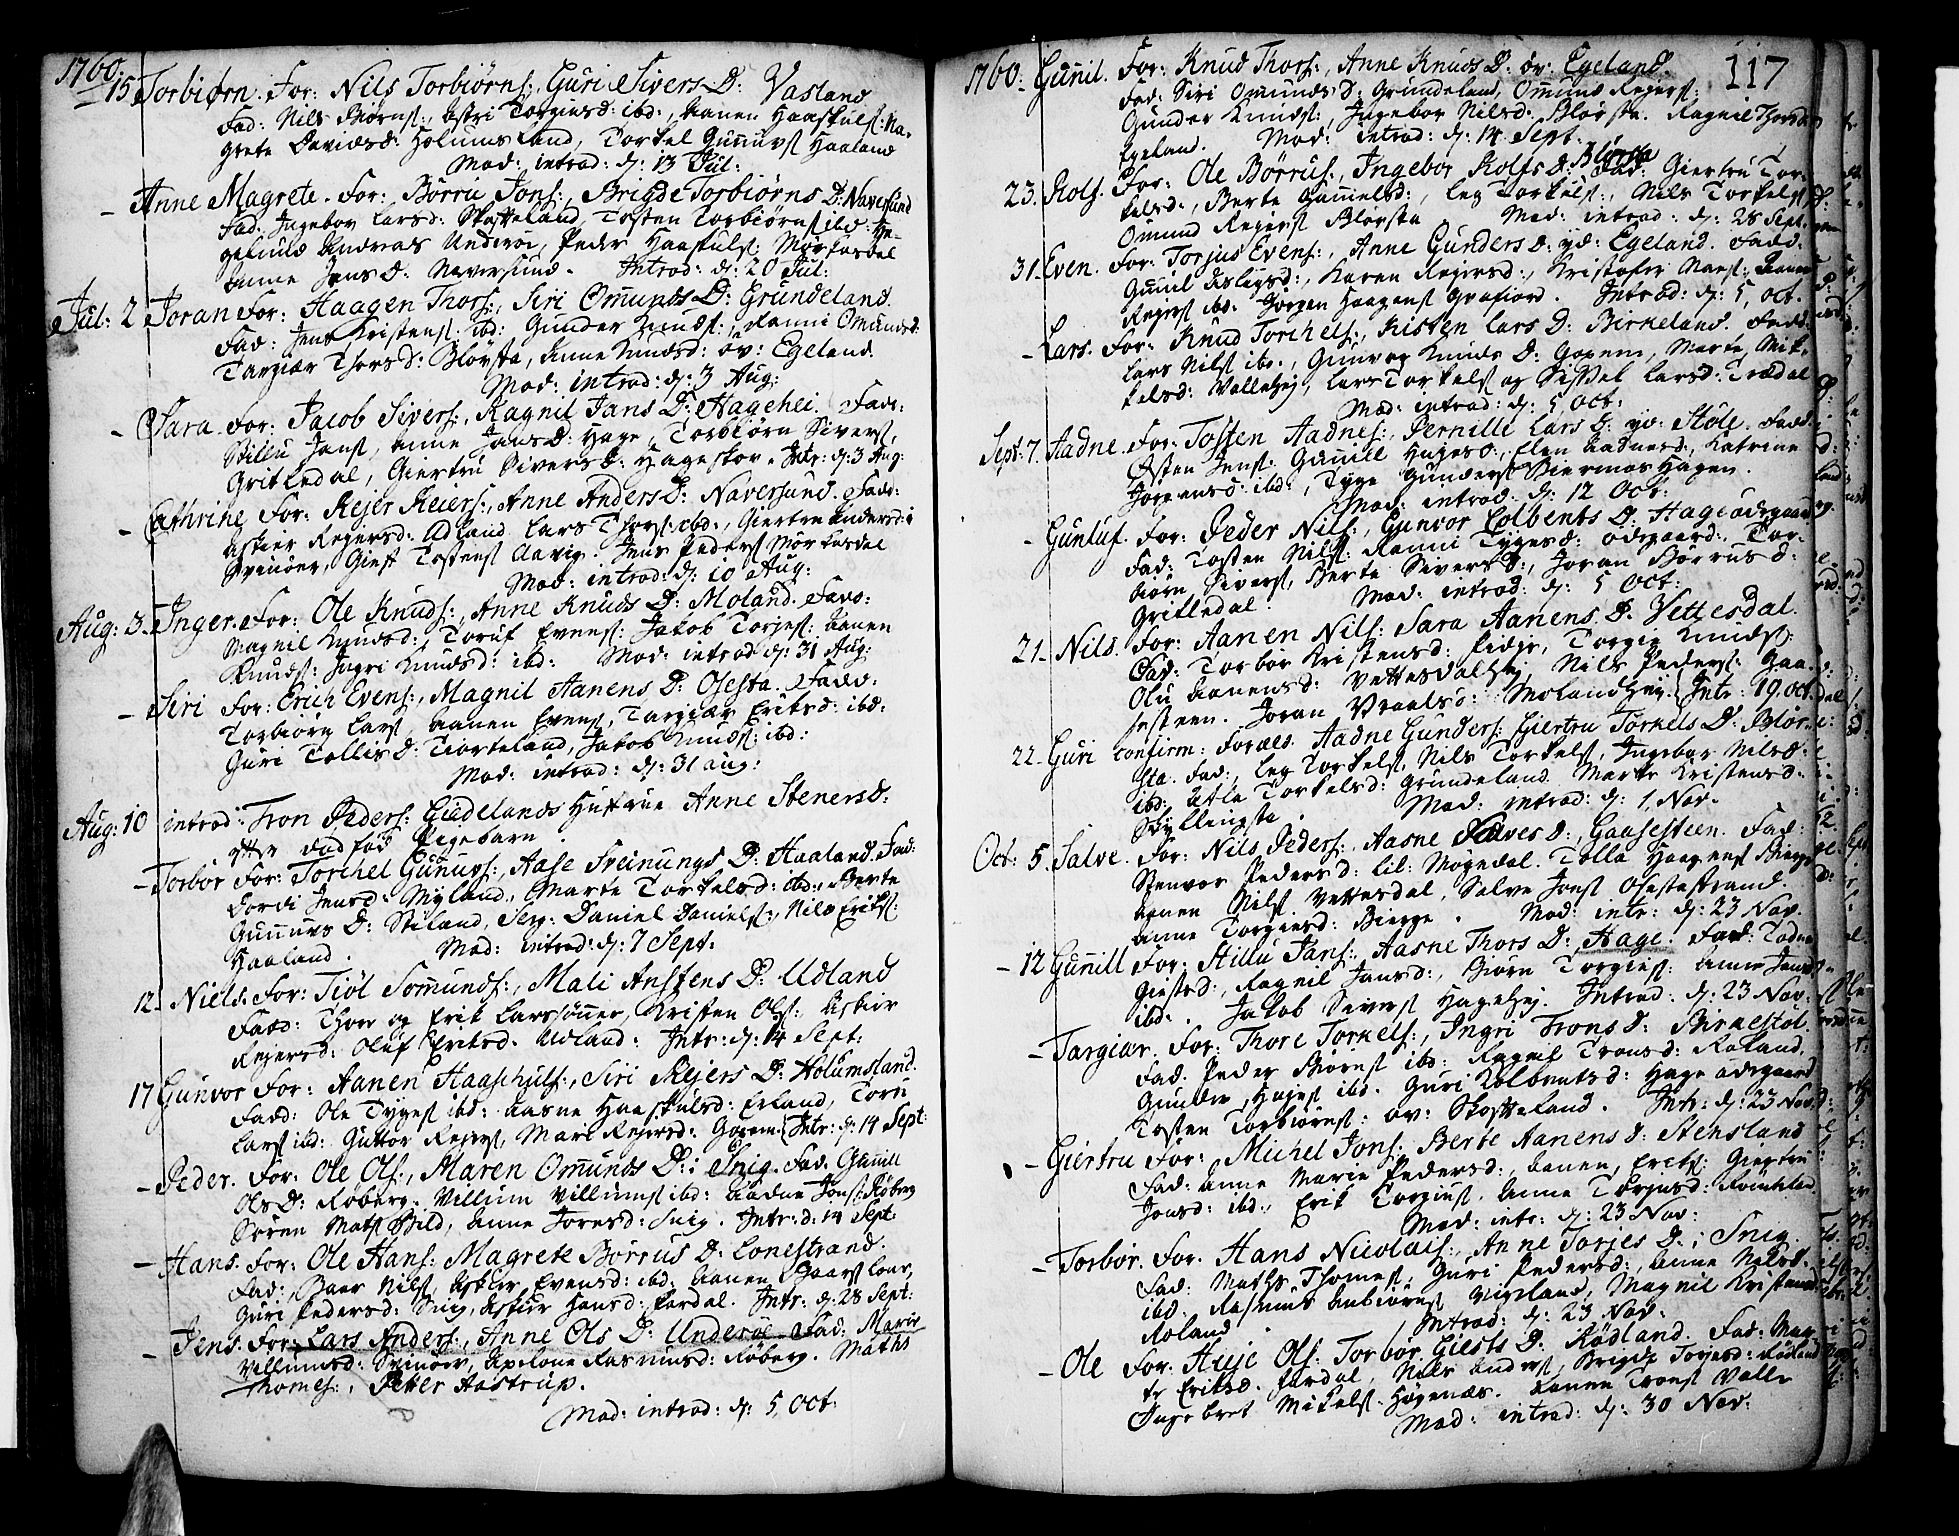 1760.
15 Torbiørn. For: Nils Torbiørns:, Guri Sivers D: Vasland
Fad: Nils Biørns:, Astri Torgiusd: ibd:, Aanen Haaskuls: Ma-
grete Davidsd: Holumsland, Torkel Gunnufs Haaland
Mod: introd: d: 13 Jul:
- Anne Magrete. For: Børru Jons:, Brigde Torbiørns D: Naversund
Fad: Ingebor Larsd: Skofteland, Tosten Torbiørns ibd: He-
Andreas Underøi, Peder Haaskuls: Mørkesdal
Anne Jens D: Naversund. Introd: d: 20 Jul:
Jul: 2 Joran For: Haagen Thors:, Siri Omunds D: Grundeland.
Fad: Jens Kristens: ibd: Gunder Knuds:, Ranni Omundsd:
Targiær Thorsd: Bløysta, Anne Knudsd: øv: Egeland.
Mod: introd: d: 3 Aug:
- Sara. For: Jacob Sivers:, Ragnil Jans D: Hagehei. Fadr:
Stillu Jans, Anne Jansd: Hage, Torbiørn Sivers,
Gritledal, Giertru Siversd: Hageskov. Intr: d: 3 Aug:
- Cathrine For: Rejer Reiers:, Anne Anders D: Naversund. Fadr:
Askier Rejersd: Adland Lars Thors: ibd:, Giertru Andersd: i
Svinøer, Giest Tostens Aavig. Jens Peders Mørkesdal
Mod: introd: d: 10 Aug:
Aug: 3. Inger. For: Ole Knuds:, Anne Knuds D: Moland. Fadd:
Magnil Knudsd:, Toruf Evens: Jakob Torjes: Aanen
Knuds: Ingri Knudsd: ibd: Mod: introd d: 31 Aug:
- Siri For: Erich Evens:, Magnil Aanens D: Osesta. Fadd:
Torbiørn Lars, Aanen Evens, Targiær Eriksd: ibd:
Guri Tollisd: Tiorteland, Jakob Knuds: ibd:
Mod: introd: d: 31 Aug:
Aug: 10 introd: Tron Peders: Gudelands Hustrue Anne Stenersd:
efter dødfød Pigebarn.
- Torbor For: Torchel Gunufs:, Aase Sveinungs D: Haaland. Fad:
Dordi Jensd: Myland, Marte Torkelsd: ibd:, Berte
Gunnufs D: Stiland, Serg: Daniel Daniels:, Nils Eriks:
Haaland. Mod: introd: d: 7 Sept:
12. Niels. For: Tiøl Somunds:, Mali Anstens D: Udland
Fadd: Thor og Erik Larssønner, Kristen Ols: Askier
Rejersd: Oluf Eriksd. Udland. Intr: d: 14 Sept:
17 Gunvor For: Aanen Haaschuls:, Siri Rejers D: Holumsland.
Fadd: Ole Tyges ibd: Aasne Haaskulsd: Erland, Toru
Lars ibd: Guttor Rejers, Mari Rejersd: Goxem. Intr: d: 14 Sept:
- Peder. For: Ole Ols:, Maren Omunds D: i Snig. Fad. Gunnill
Ols D: Røberg. Villum Villums ibd: Aadne Jons: Røberg
Søren Mats Bild, Anne Joresd: Snig. Intr: d: 14 Sept:
- Hans. For: Ole Hans: Magrete Børrus D: Lonestrand.
Fad: Baer Nils, Askier Evensd: ibd: Aanen
Guri Pedersd: Snig, Askier Hansd: Fardal. Intr: d: 28 Sept:
- Jens. For: Lars Anders:, Anne Ols D: Underøe Fad: Marie
Villumsd: Svinøer, Apelone Rasmusd: Røberg. Maths
Thomes:, Peter Aastrup.
Mod: introd: d: 5 Oct:
1760. Gunil. For: Knud Thors:, Anne Knuds D: øv: Egeland. 117
Fad: Siri Omundsd: Grundeland, Omund Rejers:
Gunder Knuds:, Ingebor Nilsd:, Bløysta. Ragnil Thorsd:
Egeland. Mod: introd: d: 14 Sept.
23. Rolf. For: Ole Børrus:, Ingebor Rolfs D: Bløysta Fad: Giertru Tor-
kelsd:, Berte Gamelsd:, Leg Torkels:, Nils Torkels
Omund Rejers Bløysta Mod: introd: d: 28 Sept.
31. Even. For: Torjus Evens:, Anne Gunders D: yd: Egeland. Fadd:
Gunil Aslagsd:, Karen Rejersd:, Kristofer Nams: Aanen
Rejers ibd: Jørgen Haagens Grafiord. Introd: d: 5, Oct.
- Lars. For: Knud Torchels:, Kisten Lars D: Birkeland. Fadd:
Lars Nils ibd:, Gunvor Knuds D: Goxem, Marte Mik-
kelsd: Vallehej, Lars Torkels og Sissel Larsd: Trædal
Mod: introd: d: 5 Oct:
Sept: 7. Aadne. For: Tosten Aadnes:, Pernille Lars D: yd: Støle. Fadd:
Østen Jens: Gunill Hajesd:, Elen Aadnesd:, Katrine
Jørgensd: ibd:, Tyge Gunders Biermoshagen.
Mod: introd: d: 12 Oct:
- Guntuf. For: Peder Nils:, Gunvor Colbents D: Hage odegaard
Fad: Tosten Nils: Ranni Tygesd: odegaard. Tor-
biørn Sivers, Berte Siversd:, Joran Børrusd:
Gritledal. Mod: introd: d: 5 Oct:
21. Nils. For: Aanen Nils: Sara Aanens D. Vettesdal.
Fad: Torbor Kristensd: Torger Knuds:
Olu Aanensd: Vettesdalhej, Nils Peders: Gaa-
sesteen. Joran Vraalsd: Molandhej. Intr: 19. Oct:
22. Guri confirm: Foræld. Aadne Gunders: Giertru Torkels D: Bløy-
sta. Fad:, Leg Torkels, Nils Torkels, Ingebor Nilsd:
ibd: Atla Torkelsd: Grundeland. Marte Kristensd:
Skyllingsta. Mod: introd: d: 1. Nov.
Oct: 5. Salve. For: Nils Peders:, Aasne Salves D:, Gaasesteen. Fad:
Stenvor Pedersd: lil: Møgedal. Tolla Haagens Biegge
Aanen Nils Vettesdal, Salve Jons Osestestrand.
Anne Torgiersd: Biegge. Mod: intr: d: 23 Nov.
- 12 Gunill For: Stillu Jans:, Aasne Thors D: Hage. Fad: Todne
Giestsd:, Ragnil Jansd:, Biørn Torgius: Anne Jansd:
ibd:. Jakob Sivers Hagehej. Introd: d: 23 Nov.
- Targiær. For: Thore Torkels:, Ingri Trons D: Birkestøl.
Fad. Peder Biørns ibd: Ragnil Tronsd: Roland.
Gunder Hajes ibd. Guri Kolbentsd: Hage odegaard
Tosten Torbiørns: øv: Skofteland. Intr: d: 23 Nov.
- Giertru For:, Michel Jons:, Berte Aanens D: Stensland
Fad: Anne Marie Pedersd:, Aanen, Eriks: Giertru
Jonsd: ibd:, Erik Torgius. Anne Torgusd:
Mod: intr: d: 23 Nov:
- Torbor. For. Hans Nicolais:, Anne Torjes D: i Snig.
Fad: Maths Thomes, Guri Pedersd:, Anne Nilsd.
ibd. Rasmus Anbiørns Vigeland, Magnil Kristensd:
Roland. Introd: d: 23 Nov.
- Ole For. Huje Ols: Torbor Giests D. Rødland. Fad: Mar-
te Eriksd: Fardal, Nils Anders, Brigde Torjusd: Rødland
Ingebret Mikels: Høgenæs. Aanen Trons Valle
Mod: introd: d: 30 Nov: